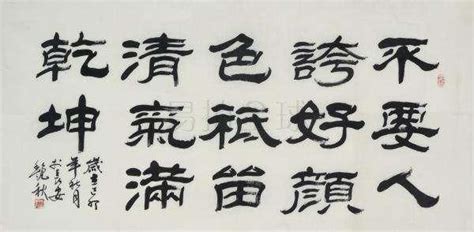 不要人
誇好顏
色祇留
清氣滿
乾坤
歲在己卯
年秋月
於長安